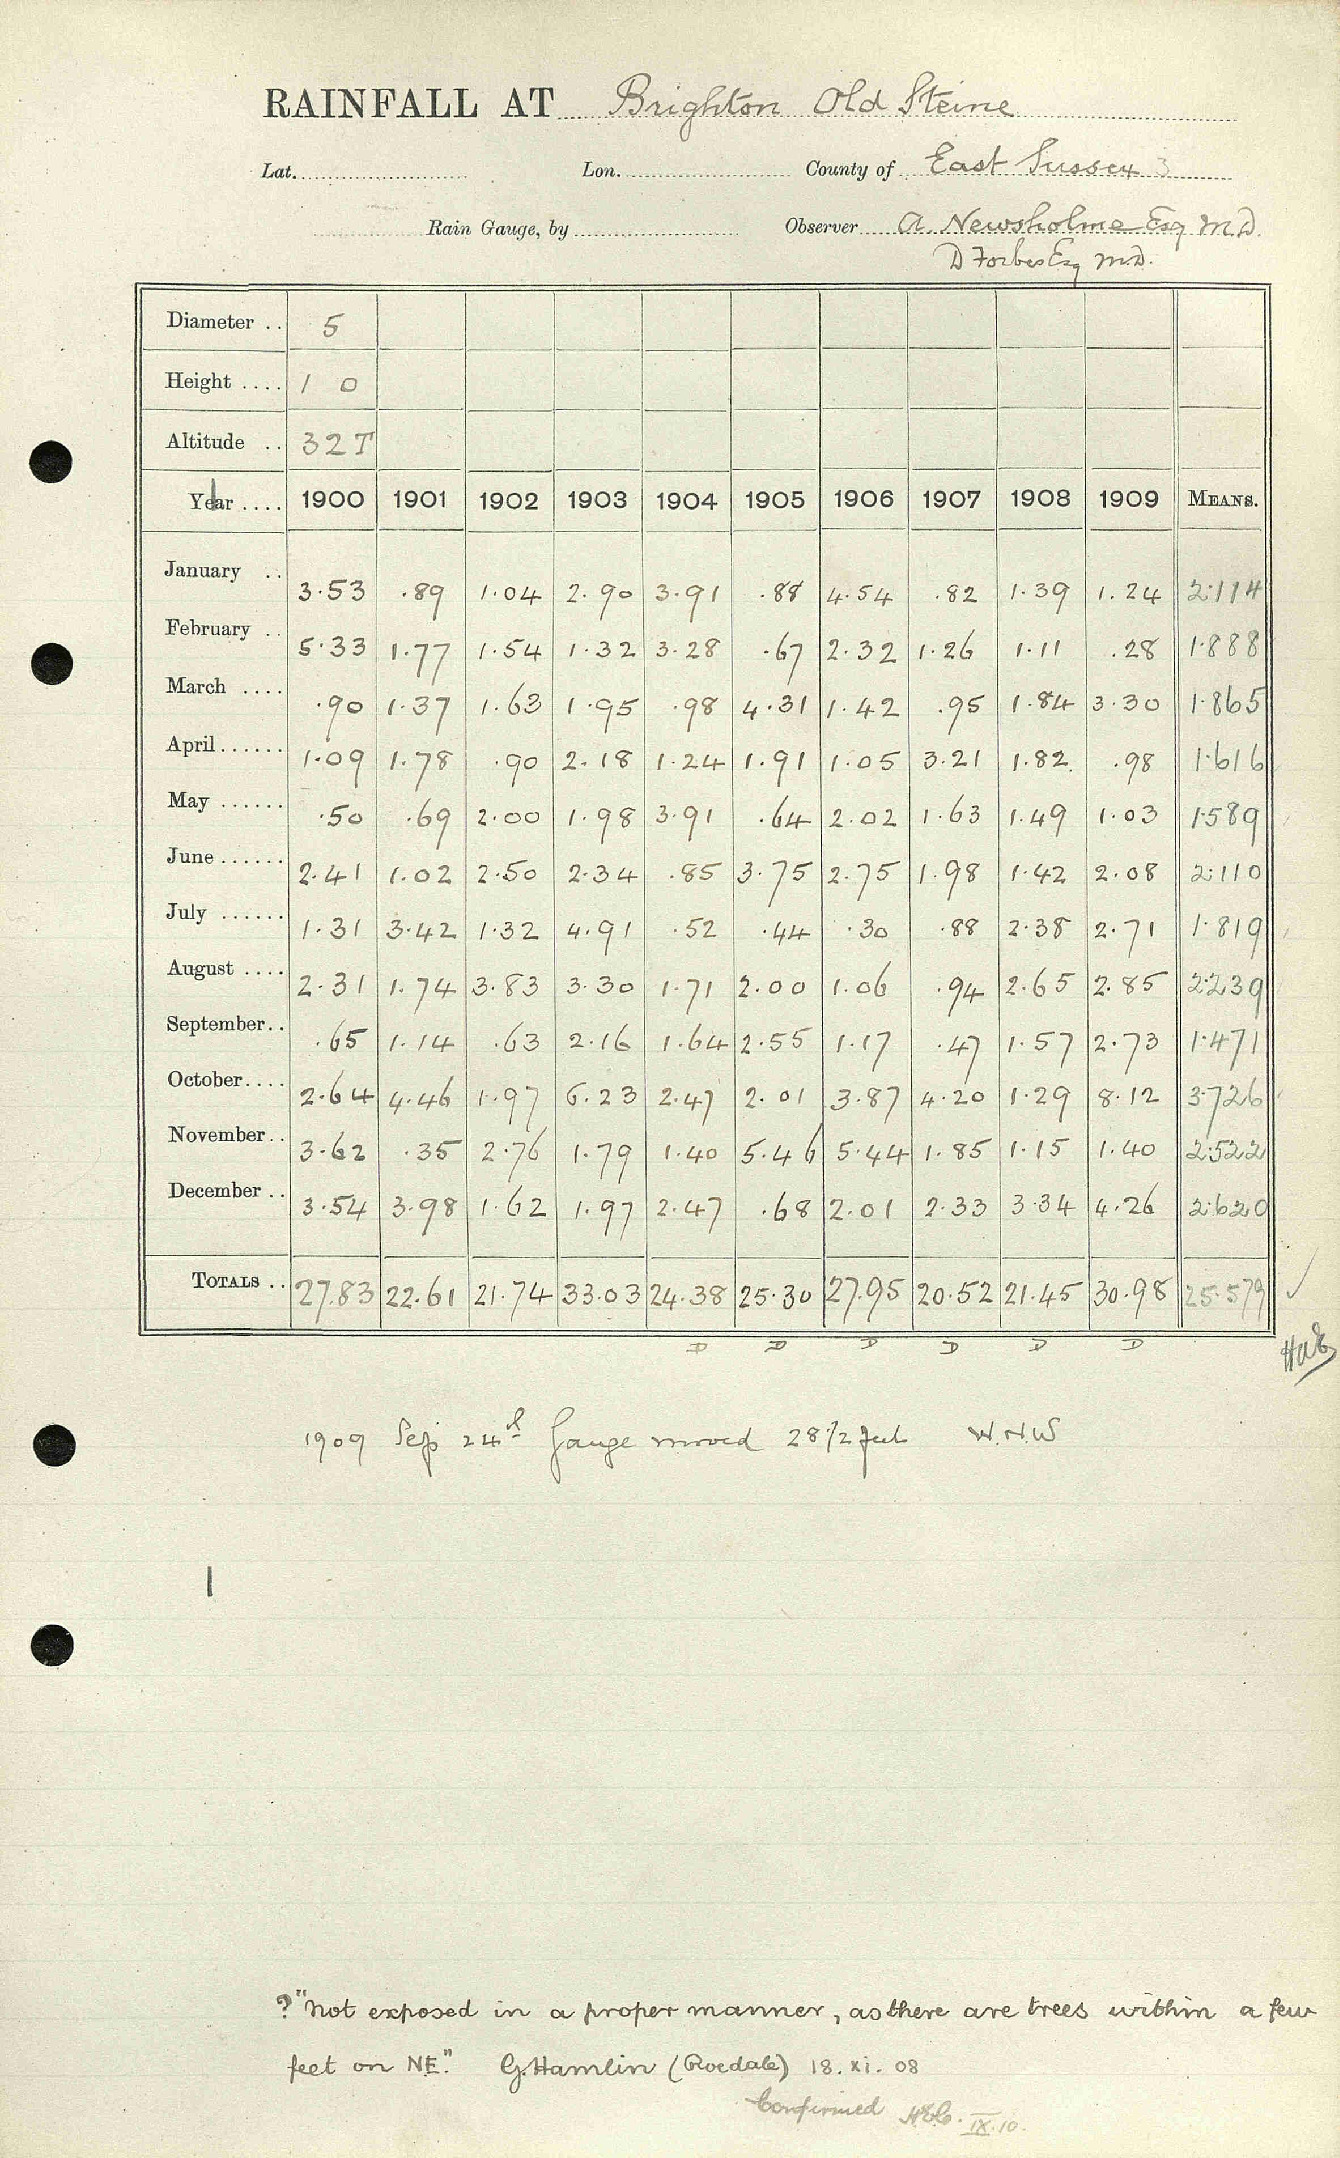 RAINFALL AT Brighton Old Steine
Lat. Lon. County of East Sussex 3
Rain Gauge, by Observer A. Newsholme Esq M.D.
D Forbes Esq M.D.
Diameter .. 5
Height .... 1 0
Altitude .. 32T
Year .... 1900 1901 1902 1903 1904 1905 1906 1907 1908 1909 MEANS.
January .. 3.53 .89 1.04 2.90 3.91 .88 4.54 .82 1.39 1.24 2.114
February .. 5.33 1.77 1.54 1.32 3.28 .67 2.32 1.26 1.11 .28 1.888
March .... .90 1.37 1.63 1.95 .98 4.31 1.42 .95 1.84 3.30 1.865
April ...... 1.09 1.78 .90 2.18 1.24 1.91 1.05 3.21 1.82 .98 1.616
May ...... .50 .69 2.00 1.98 3.91 .64 2.02 1.63 1.49 1.03 1.589
June ...... 2.41 1.02 2.50 2.34 .85 3.75 2.75 1.98 1.42 2.08 2.110
July ...... 1.31 3.42 1.32 4.91 .52 .44 .30 .88 2.38 2.71 1.819
August .... 2.31 1.74 3.83 3.30 1.71 2.00 1.06 .94 2.65 2.85 2.239
September.. .65 1.14 .63 2.16 1.64 2.55 1.17 .47 1.57 2.73 1.471
October.... 2.64 4.46 1.97 6.23 2.47 2.01 3.87 4.20 1.29 8.12 3.726
November.. 3.62 .35 2.76 1.79 1.40 5.46 5.44 1.85 1.15 1.40 2.522
December .. 3.54 3.98 1.62 1.97 2.47 .68 2.01 2.33 3.34 4.26 2.620
TOTALS .. 27.83 22.61 21.74 33.03 24.38 25.30 27.95 20.52 21.45 30.98 25.579
D D D D D D
1909 Sep 24th Gauge moved 28 1/2 feet W.N.W
?"not exposed in a proper manner, as there are trees within a few
feet on NE". G. Hamlin (Roedale) 18. xi. 08
Confirmed IX.10.